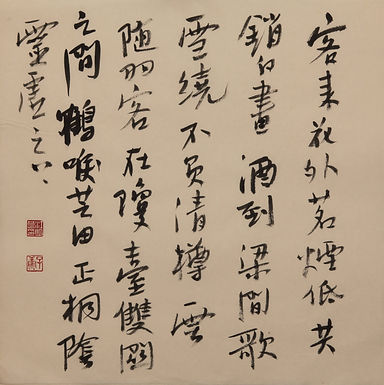 客来花外茗烟低共
鎖白晝酒到梁間歌
雪繞不負清樽雲
随羽客在瓊臺雙闕
之間鶴唳芝田正桐陰
靈虛之上